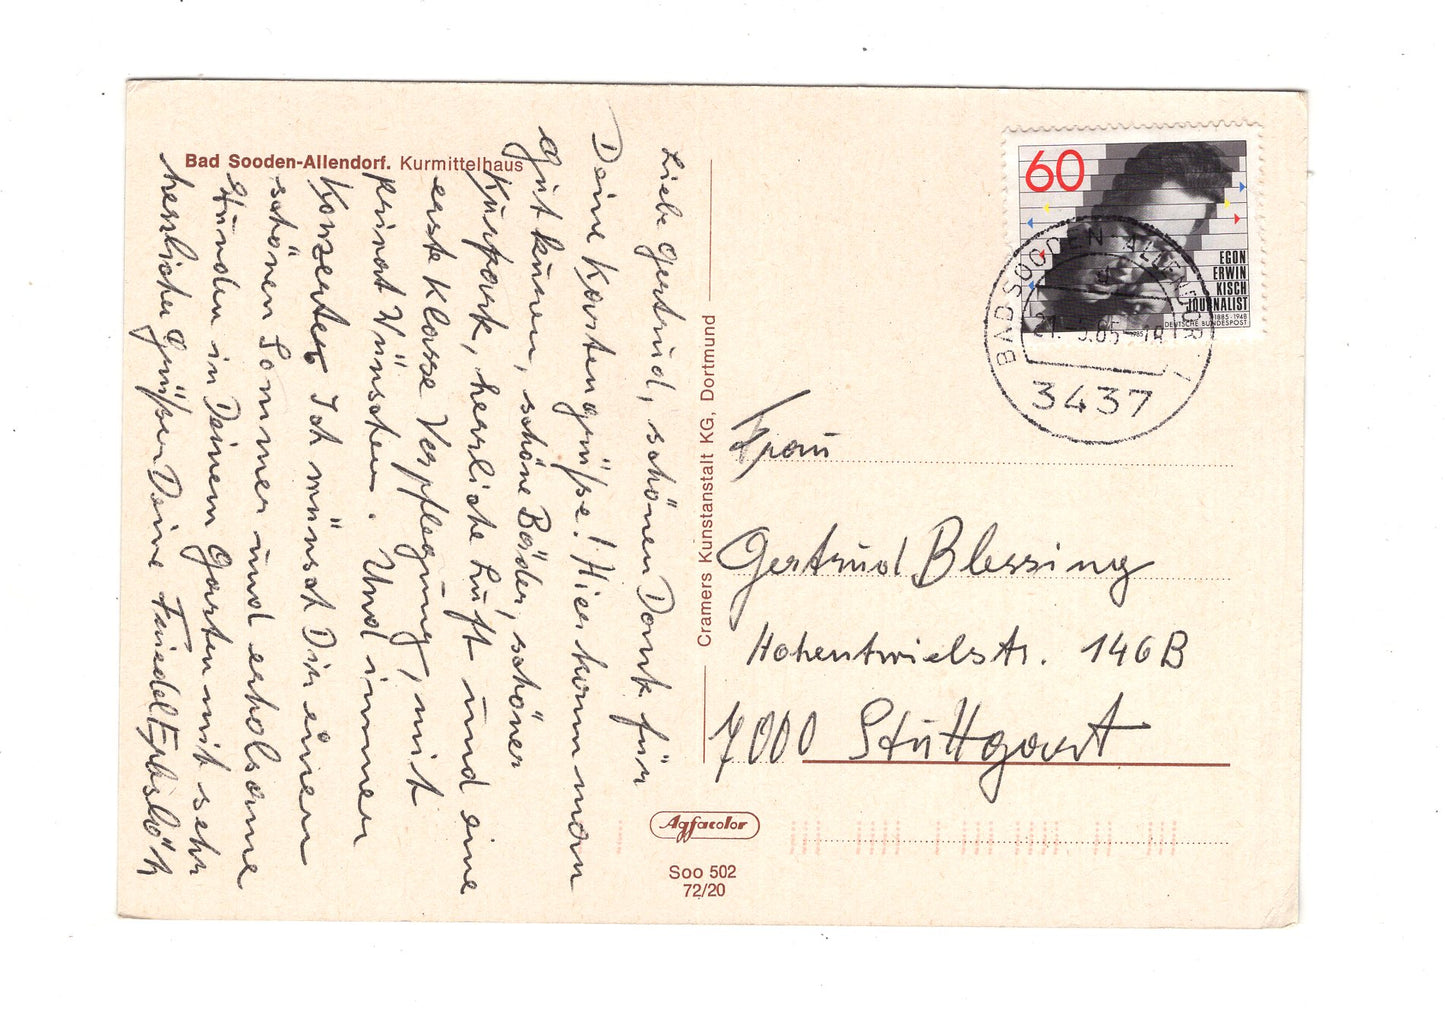 Bad Sooden-Allendorf. Kurmittelhaus
Liebe Gertrud, schönen Dank für
Deine Kartengrüße! Hier kann man
gut kuren, schöne Bäder, schöner
Kurpark, herrliche Luft und eine
erste Klasse Verpflegung, mit
Privat Wünschen. Und immer
Konzerte. Ich wünsch Dir einen
schönen Sommer und erholsame
Stunden in Deinem Garten mit sehr
herzlichen Grüßen Deine Friedel
Cramers Kunstanstalt KG, Dortmund
60
EGON
ERWIN
KISCH
JOURNALIST
1885-1948
DEUTSCHE BUNDESPOST
BAD SOODEN-ALLENDORF 1
3437
Frau
Gertrud Blessing
Hohentwielstr. 146B
7000 Stuttgart
Agfacolor
Soo 502
72/20